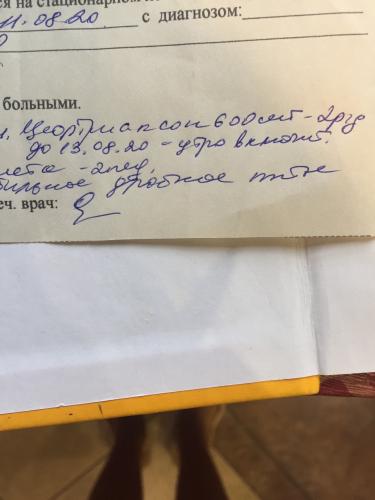 ся на стационарном
11.08.20 с диагнозом:
больными.
Цефтриаксон 600мг - 2р/д
до 13.08.20 - утро включит.
диета - 2нед,
обильное дробное питье
еч. врач: